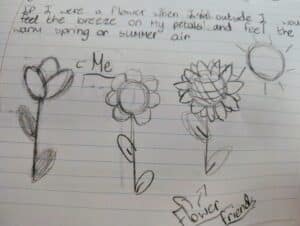 IF I were a flower when outside I wou
feel the breeze on my petals and feel the
warm spring or summer air
Me
Flower
friends